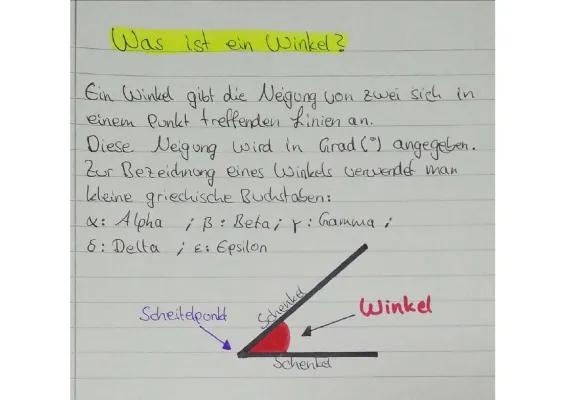 Was ist ein Winkel?
Ein Winkel gibt die Neigung von zwei sich in
einem Punkt treffenden Linien an.
Diese Neigung wird in Grad (°) angegeben.
Zur Bezeichnung eines Winkels verwendet man
kleine griechische Buchstaben:
α: Alpha ; β: Beta; γ: Gamma ;
δ: Delta ; ε: Epsilon
Scheitelpunkt
Schenkel
Winkel
Schenkel